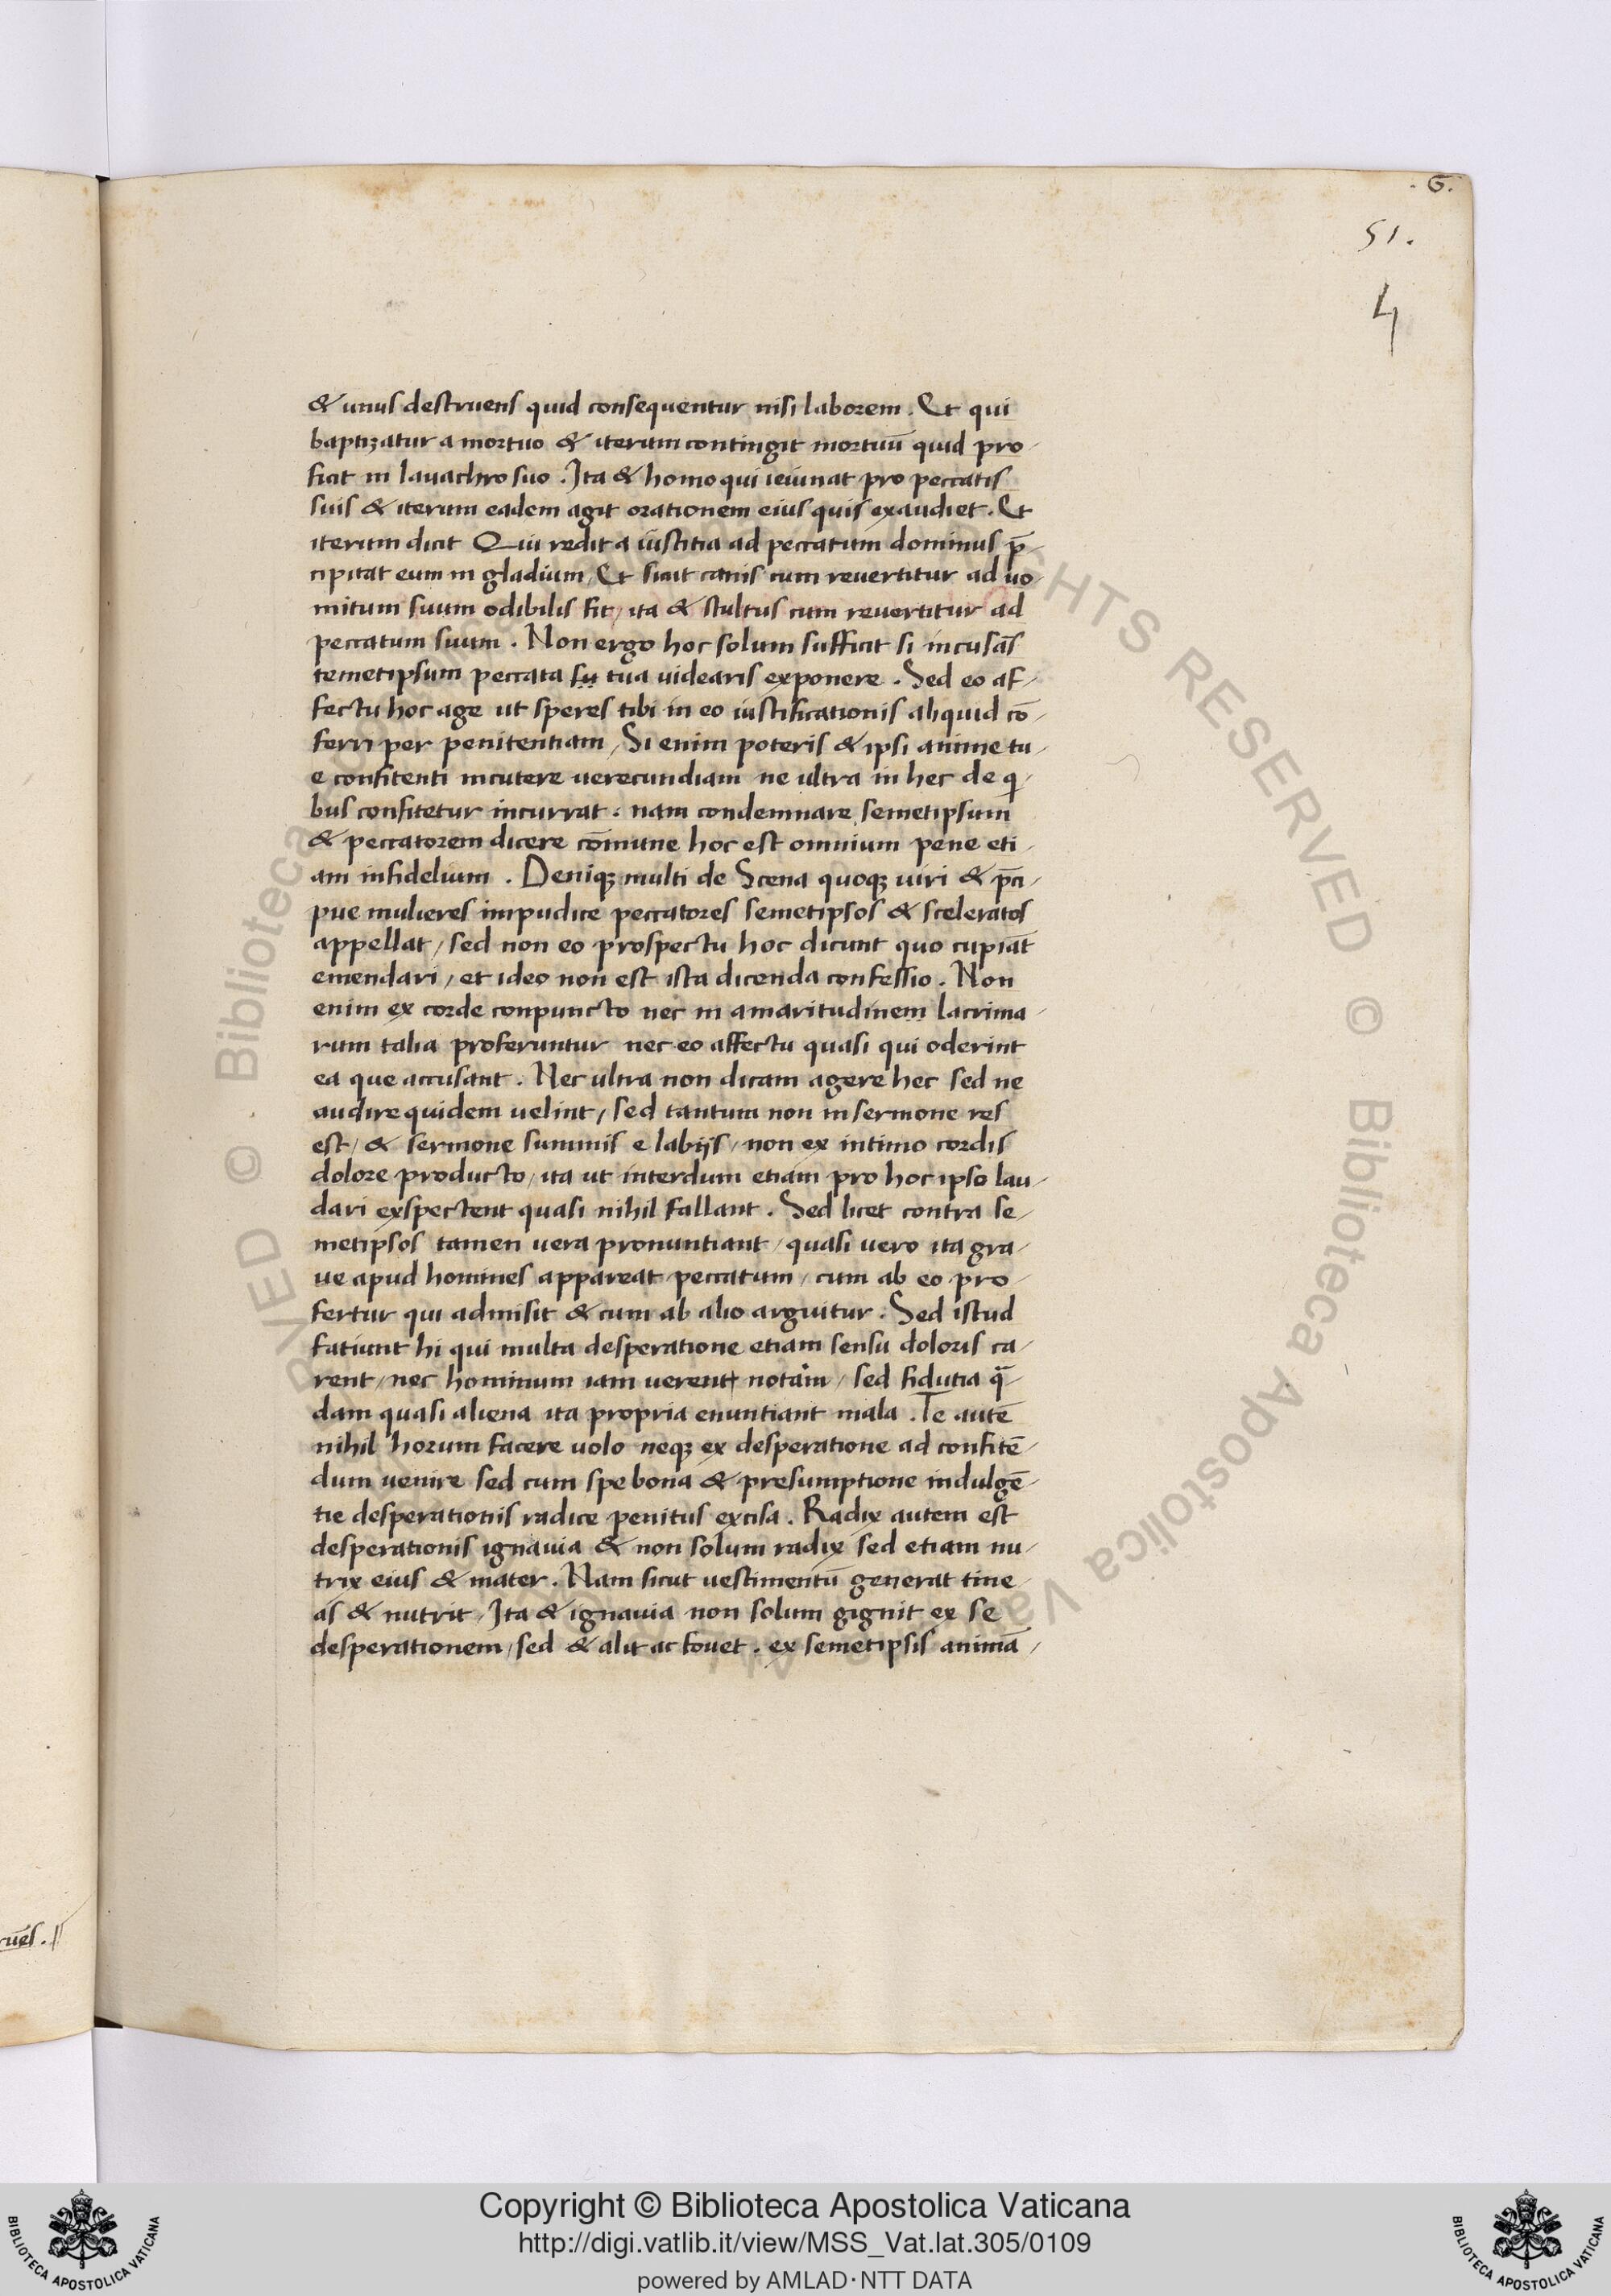 .G.
51.
4
& unus destruens quid consequentur nisi laborem. Et qui
baptizatur a mortuo & iterum contingit mortuū quid pro-
ficit in lauachro suo. Ita & homo qui ieiunat pro peccatis
suis & iterum eadem agit orationem eius quis exaudiet. Et
iterum dicit Qui redit a iustitia ad peccatum dominus p̄-
cipitat eum in gladium, Et sicut canis cum reuertitur ad uo-
mitum suum odibilis fit, ita & stultus cum reuertitur ad
peccatum suum. Non ergo hoc solum sufficit si incusās
temetipsum peccata su tua uidearis exponere. Sed eo af-
fectu hoc age ut speres tibi in eo iustificationis aliquid cō-
ferri per penitentiam, Si enim poteris & ipsi anime tu-
e confitenti incutere uerecundiam ne ultra in hec de q-
bus confitetur incurrat. nam condemnare semetipsum
& peccatorem dicere cōmune hoc est omnium pene eti-
am infidelium. Deniqꝫ multi de Scena quoqꝫ uiri & p̄ci-
pue mulieres impudice peccatores semetipsos & sceleratos
appellat, sed non eo prospectu hoc dicunt quo cupiāt
emendari, et ideo non est ista dicenda confessio. Non
enim ex corde conpuncto nec in amaritudinem lacrima-
rum talia proferuntur nec eo affectu quasi qui oderint
ea que accusant. Nec ultra non dicam agere hec sed ne
audire quidem uelint, sed tantum non in sermone res
est, & sermone summis e labijs, non ex intimo cordis
dolore producto, ita ut interdum etiam pro hoc ipso lau-
dari exspectent quasi nihil fallant. Sed licet contra se-
metipsos tamen uera pronuntiant, quasi uero ita gra-
ue apud homines appareat peccatum, cum ab eo pro-
fertur qui admisit & cum ab alio arguitur. Sed istud
fatiunt hi qui multa desperatione etiam sensu doloris ca-
rent, nec hominum iam uerent notam, sed fidutia q̄-
dam quasi aliena ita propria enuntiant mala. Te autē
nihil horum facere uolo neqꝫ ex desperatione ad confitē-
dum uenire sed cum spe bona & presumptione indulgē-
tie desperationis radice penitus excisa. Radix autem est
desperationis ignauia & non solum radix sed etiam nu-
trix eius & mater. Nam sicut uestimentū generat tine-
as & nutrit, Ita & ignauia non solum gignit ex se
desperationem, sed & alit ac fouet. ex semetipsis animā-
ruēs.
© Biblioteca Apostolica Vaticana
RIGHTS RESERVED
Copyright © Biblioteca Apostolica Vaticana
http://digi.vatlib.it/view/MSS_Vat.lat.305/0109
powered by AMLAD·NTT DATA
BIBLIOTECA APOSTOLICA VATICANA
BIBLIOTECA APOSTOLICA VATICANA